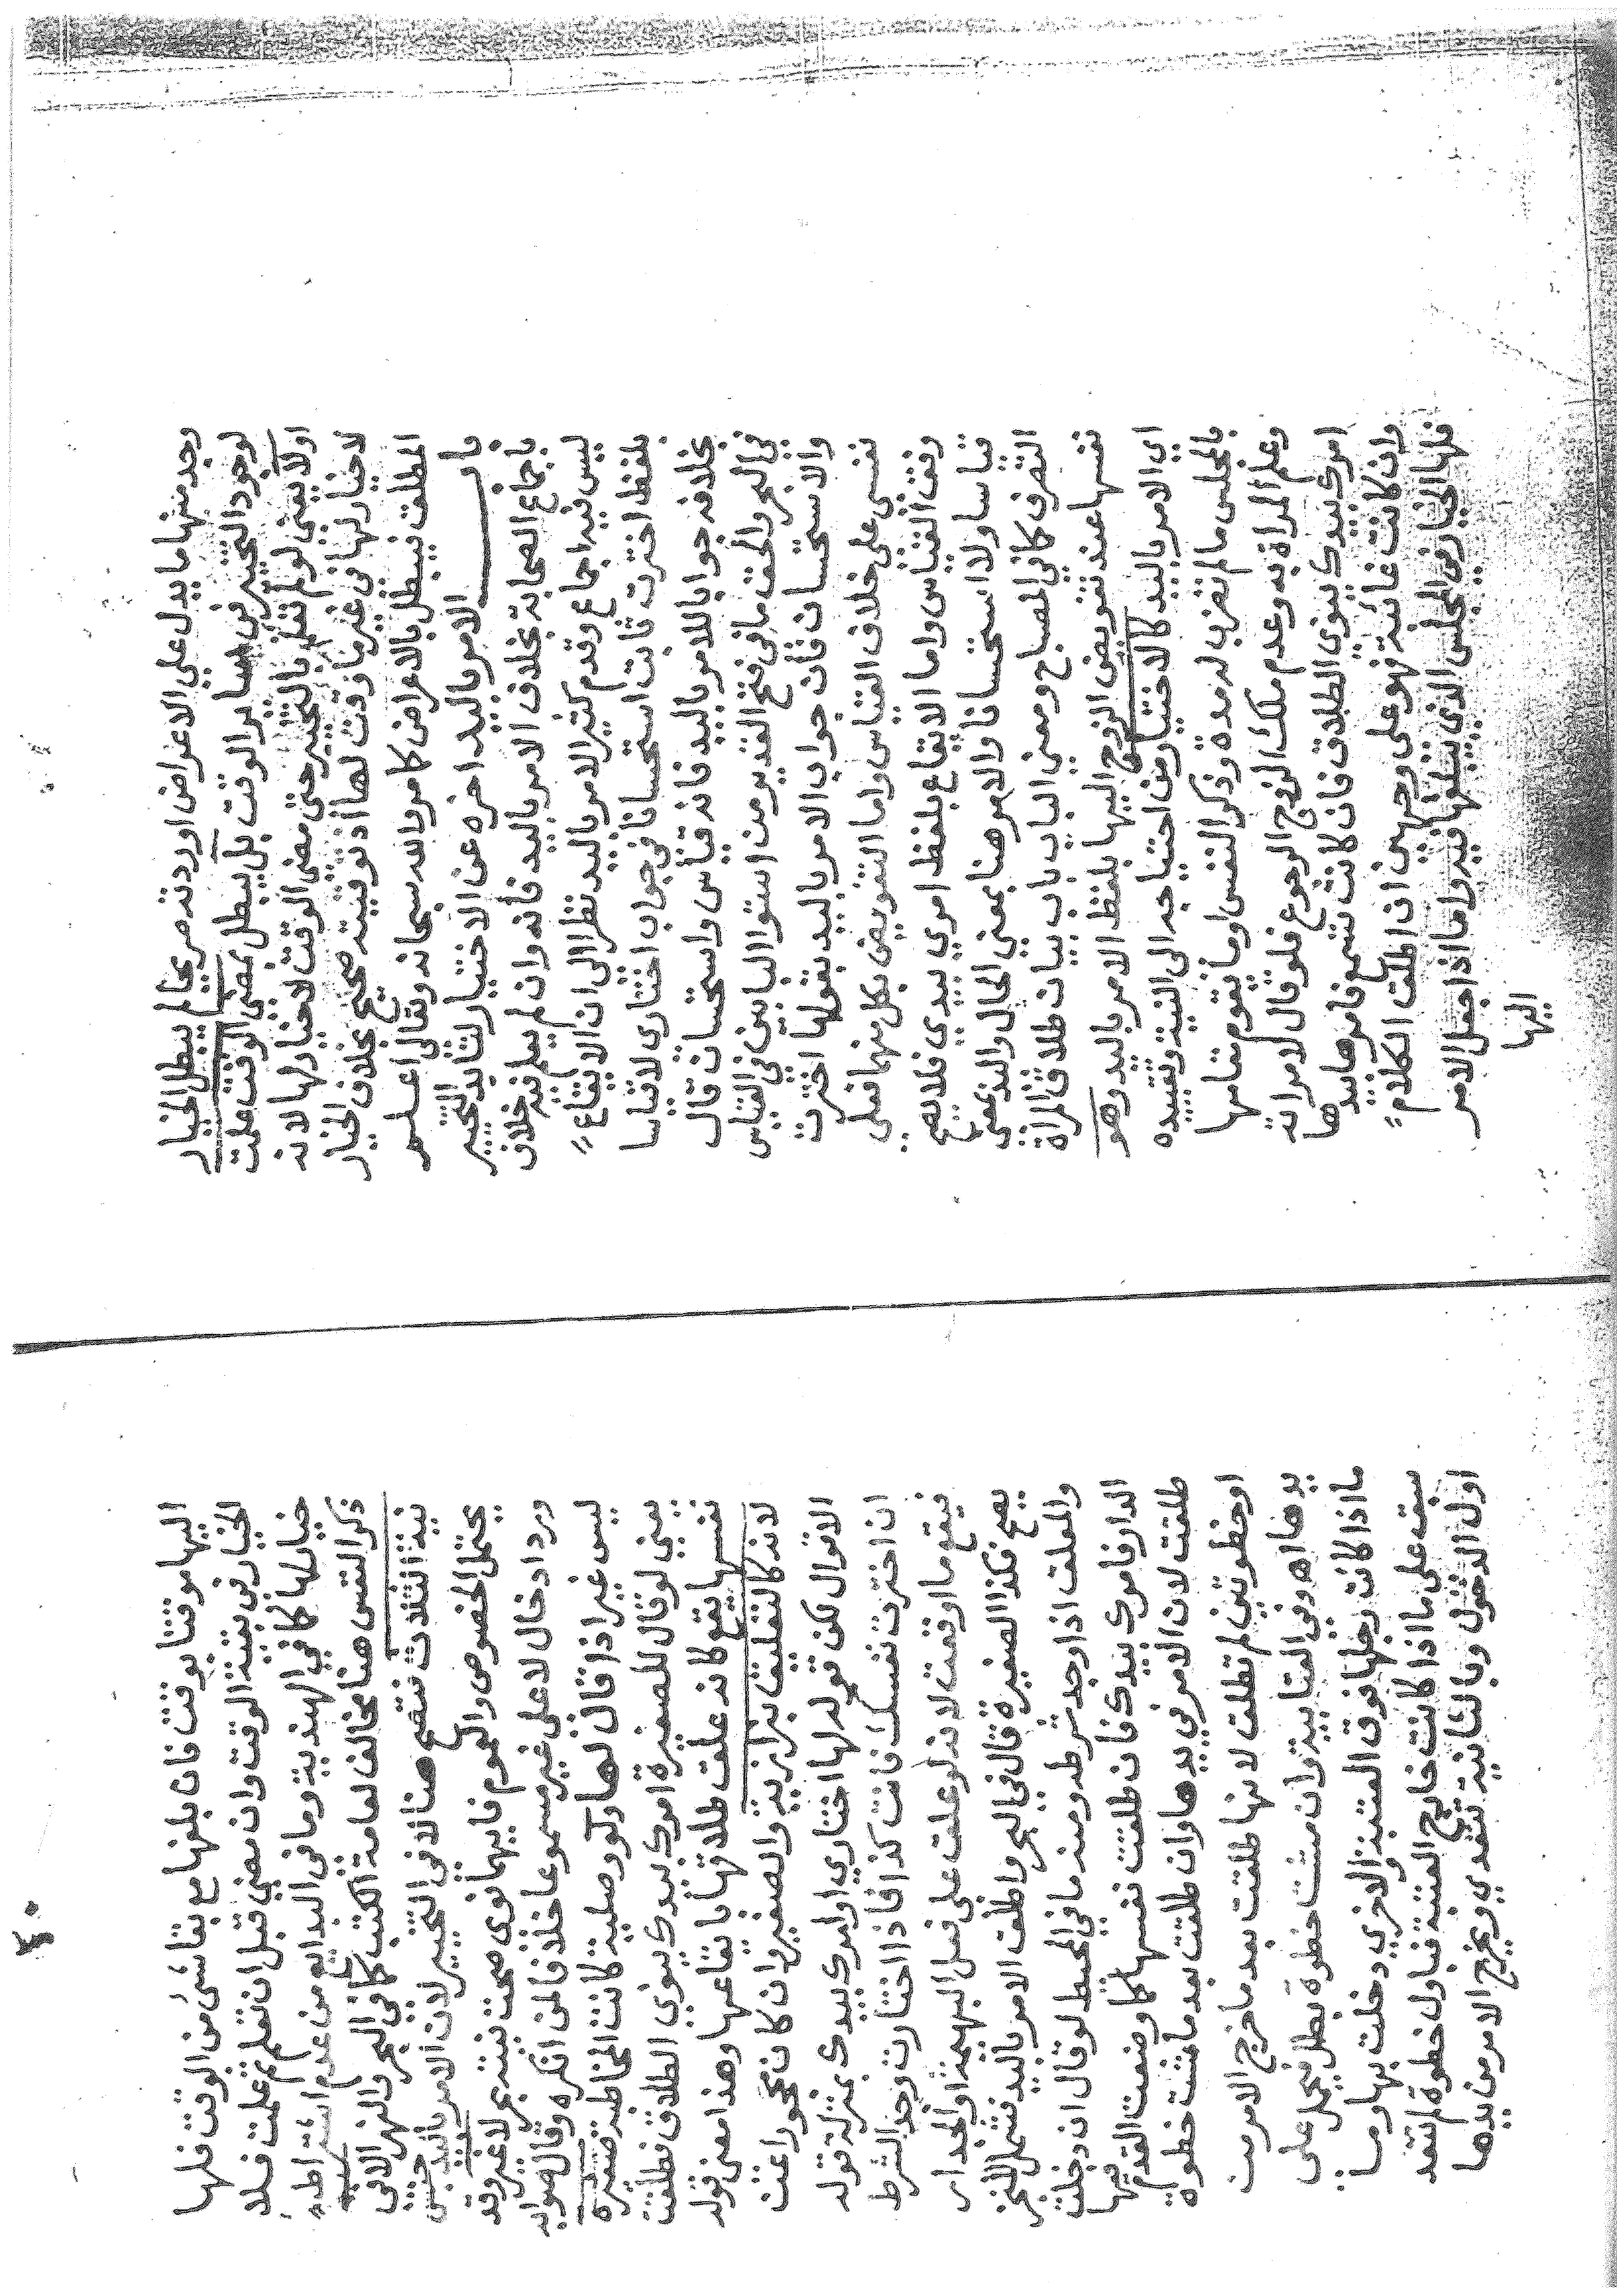 وجد منها ما يدل على الاعراض او ردته صريحا لم يبطل الخيار
لوجود التخيير في سائر الوقت بل يبطل بمضي الوقت علمت
اولا يعني لو لم تعلم بالتخيير حتى مضى الوقت لا خيار لها لانه
لا خيار لها في غير ما وقت لها اذ توقيته صحيح بخلاف الخيار
المطلق فيبطل بالاعراض كما مر والله سبحانه وتعالى اعلم
باب الامر باليد اخره عن الاختيار لتايد التخيير
باجماع الصحابة بخلاف الامر باليد فانه وان لم يعلم فيه خلاف
ليس فيه اجماع وقدم كثير الامر باليد نظرا الى ان الايقاع
بلفظ اخترت ثابت استحسانا في جواب اختاري لا قياسا
بخلافه جوابا للامر باليد فانه قياس واستحسان قال
في البحر والحق ما في فتح القدير من استوا البابين في القياس
والاستحسان فان جواب الامر باليد بقولها اخترت
نفسي على خلاف القياس واما التفويض بكل منهما فعلى
وفق القياس واما الايقاع بلفظ امري بيدي فلا يصح
قياسا ولا استحسانا والامر هنا بمعنى الحال واليد بمعنى
التصرف كما في المصباح ومعنى الباب باب بيان طلاق المراة
نفسها عند تفويض الزوج اليها بلفظ الامر باليد وهو
اي الامر باليد كالاختيار من احتياجه الى النية وتقييده
بالمجلس ما لم تضرب له مدة وذكر النفس او ما يقوم مقامها
وعلم المراة به وعدم ملك الزوج الرجوع فلو قال لامراته
امرك بيدك ينوي الطلاق فان كانت تسمع فامرها بيدها
وان كانت غائبة فهو على وجهين ان اطلق الكلام
فلها الخيار في المجلس الذي يبلغها فيه واما اذا جعل الامر
اليها
٤٠
اليها موقتا بوقت فان بلغها مع بقا شئ من الوقت فلها
الخيار في بقية الوقت وان مضى قبل ان تعلم ثم علمت فلا
خيار لها كما في الهندية وما في البدايع من عدم اشتراطه
ذكر النفس هنا مخالف لعامة الكتب كما في البحر والنهر الا في
نية الثلاث فتصح هنا لا في التخيير لان الامر باليد جنس
يحتمل الخصوص والعموم فايهما نوى صحت نيته بحر لا غير وقد
ورد ادخال لا على غير مسموعا خلافا لمن انكره وقال صوابه
ليس غير اذا قال لها ولو صلية كانت المخاطبة صغيرة
يعني لو قال للصغيرة امرك بيدك ينوي الطلاق فطلقت
نفسها يقع كانه علق طلاقها بايقاعها وهذا معنى قوله
لانه كالتعليق بزازية والصغير ان كان نحو راغت
الاقوال لكن قوله لها اختاري او امرك بيدك بمنزلة قوله
ان اخترت نفسك فانت كذا فاذا اختارت وجد الشرط
فيقع ما اوقعت لانه لو علق على فعل البهيمة او الجدار
يصح فكذا الصغيرة قال في البحر واطلق الامر باليد فشمل المنجز
والمعلق اذا وجد شرطه ومنه ما في المحيط لو قال ان دخلت
الدار فامرك بيدك فان طلقت نفسها كما وضعت القدم فيها
طلقت لان الامر في يدها وان طلقت بعد ما مشت خطوة
او خطوتين لم تطلق لانها طلقت بعد ما خرج الامر من
يدها اهـ وفي العتابية وان مشت خطوة بطل فيحمل على
ما اذا كانت رجلها فوق العتبة والاخرى دخلت بها وما
سبق على ما اذا كانت خارج العتبة فباول خطوة لم تتعد
اول الدخول وبالثانية تتعدى ويخرج الامر من يدها